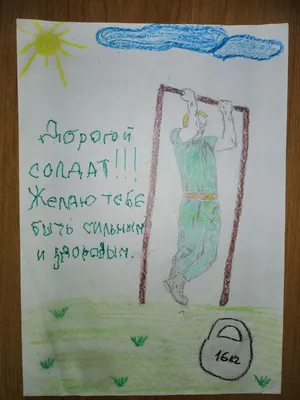 Дорогой
солдат!!!
Желаю тебе
быть сильным
и здоровым.
16кг